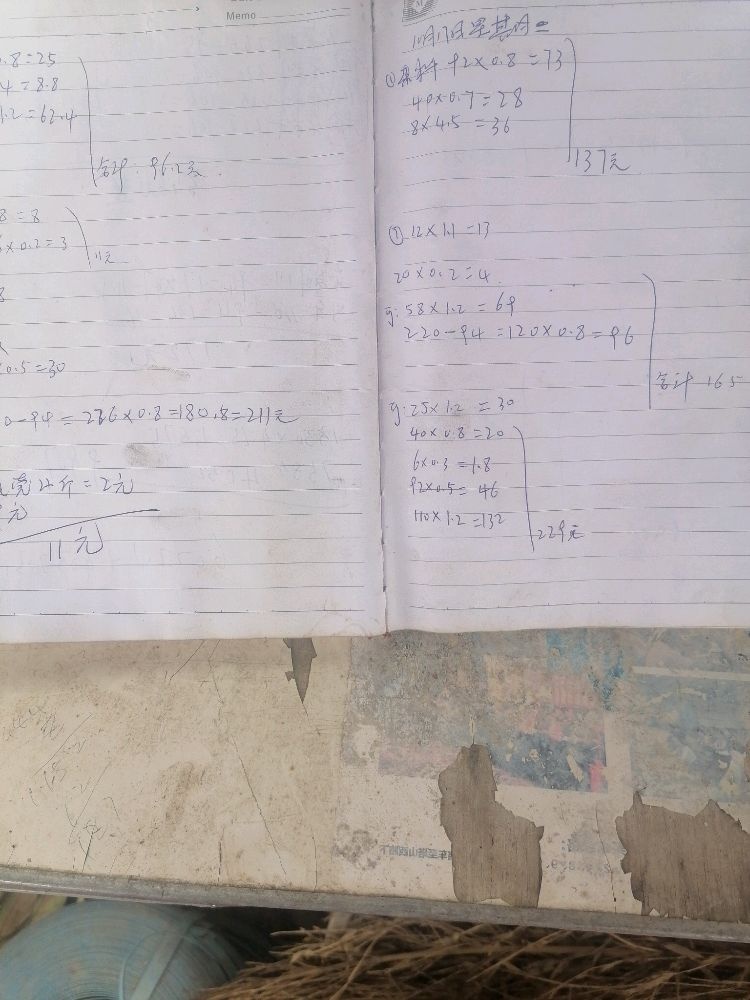 Memo
0.8=25
4=8.8
1.2=62.4
合计 96.2元
8=8
×0.2=3
11元
8
0.5=30
0-94=226×0.8=180.8=211元
斤=2元
元
11元
10月17日星期二
92×0.8=73
40×0.7=28
8×4.5=36
137元
① 12×1.1=13
20×0.2=4
g:58×1.2=69
220-94=120×0.8=96
合计 165
g:25×1.2=30
40×0.8=20
6×0.3=1.8
92×0.5=46
110×1.2=132
229元